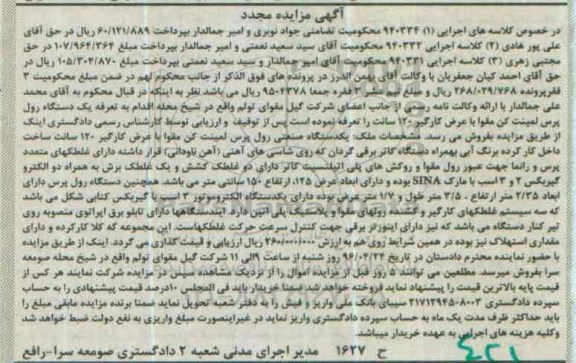 آگهی مزایده مجدد
در خصوص کلاسه های اجرایی (۱) ۹۴۰۳۳۴ محکومیت تضامنی جواد نوبری و امیر جمالدار بپرداخت ۶۰/۱۲۱/۸۸۹ ریال در حق آقای
علی پور هادی (۲) کلاسه اجرایی ۹۴۰۳۳۲ محکومیت آقای سید سعید نعمتی و امیر جمالدار بپرداخت مبلغ ۱۰۷/۹۶۴/۳۶۴ در حق
مجتبی زهری (۳) کلاسه اجرایی ۹۴۰۳۳۱ محکومیت آقای امیر جمالدار و سید سعید نعمتی بپرداخت مبلغ ۱۰۵/۳۰۴/۸۷۰ ریال در
حق آقای احمد کیان جعفریان با وکالت آقای بهمن اندرز در پرونده های فوق الذکر از جانب محکوم لهم در ضمن مبلغ محکومیت ۳
فقره پرونده ۲۶۸/۰۲۹/۷۶۸ ریال و مبلغ نیم عشر ۳ فقره جمعا ۹۵۰۴۳۷۸ ریال می باشد نظر به اینکه در قبال محکوم به آقای محمد
علی جمالدار با ارائه وکالت نامه رسمی از جانب اعضای شرکت گیل مقوای تولم واقع در شیخ محله اقدام به تعرفه یک دستگاه رول
پرس لمینت کن مقوا با عرض کارگیر ۱۲۰ سانت را تعرفه نموده است پس از توقیف و ارزیابی توسط کارشناس رسمی دادگستری اینک
از طریق مزایده بفروش می رسد. مشخصات ملک: یکدستگاه صنعتی رول پرس لمینت کن مقوا با عرض کارگیر ۱۲۰ سانت ساخت
داخل کار کرده برنگ آبی بهمراه دستگاه کاتر برقی گردان که روی شاسی های آهنی (آهن ناودانی) قرار داشته دارای غلطکهای متعدد
پرس و رانما جهت عبور رول مقوا و روکش های پلی اتیلنسیت کاتر دارای دو غلطک کشش و یک غلطک برش به همراه دو الکترو
گیربکس ۲ و ۳ اسب با مارک SINA بوده و دارای ابعاد عرض ۱۲۵، ارتفاع ۱۵۰ سانتی متر می باشد. همچنین دستگاه رول پرس دارای
ابعاد ۲/۳۵ متر ارتفاع ، ۳/۵ متر طول و ۱/۷ متر عرض بوده دارای یکدستگاه الکتروموتور ۳ اسب با گیربکس کتابی شکل می باشد
که سه سیستم غلطکهای کارگیر و کشنده رولهای مقوا و پلاستیک پلی اتین دارد. ایندستگاهها دارای تابلو برق اپراتوی منصوبه روی
تیر کنار دستگاه می باشد که نیز دارای اینورتر برقی جهت کنترل سرعت حرکت غلطکهاست. این مجموعه که کلا کارکرده و دارای
مقداری استهلاک نیز بوده در همین شرایط روی هم به ارزش ۲۶۰/۰۰۰/۰۰۰ ریال ارزیابی و قیمت گذاری می گردد. اینک از طریق مزایده
با حضور نماینده محترم دادستان در تاریخ ۹۶/۰۴/۲۲ روز شنبه از ساعت ۹ الی ۱۱ شرکت گیل مقوای تولم واقع در شیخ محله صومعه
سرا بفروش میرسد. مطلعین می توانند ۵ روز قبل از مزایده اموال را از نزدیک مشاهده سپس در مزایده شرکت نمایند هر کس از
قیمت پایه بالاترین قیمت را پیشنهاد نماید فروخته خواهد شد ضمنا خریدار باید فی المجلس ۱۰ درصد قیمت پیشنهادی را به حساب
سپرده دادگستری ۲۱۷۱۲۹۴۵۰۸۰۰۳ سیبای بانک ملی واریز و فیش را به دفتر شعبه تحویل نماید ضمنا برنده مزایده مابقی مبلغ را
باید حداکثر ظرف مدت یک ماه به حساب سپرده دادگستری واریز نماید در غیر اینصورت مبلغ واریزی به نفع دولت ضبط خواهد شد
وکلیه هزینه های اجرایی به عهده خریدار میباشد.
ح ۱۶۲۷ مدیر اجرای مدنی شعبه ۲ دادگستری صومعه سرا-رافع